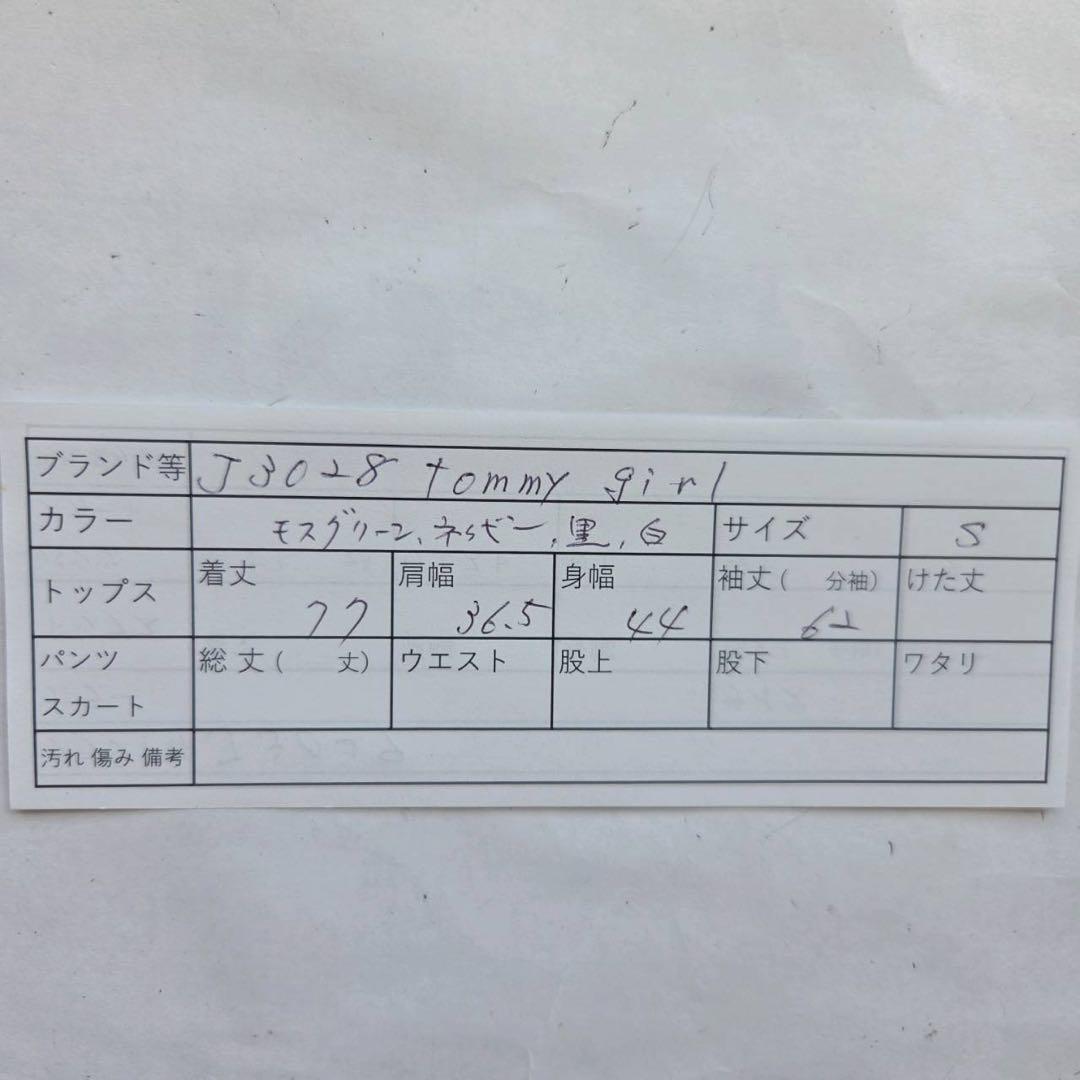 ブランド等 J3028 tommy girl
カラー モスグリーン、ネイビー、黒、白 サイズ S
トップス 着丈 77 肩幅 36.5 身幅 44 袖丈( 分袖) 62 けた丈
パンツ スカート 総丈( 丈) ウエスト 股上 股下 ワタリ
汚れ 傷み 備考